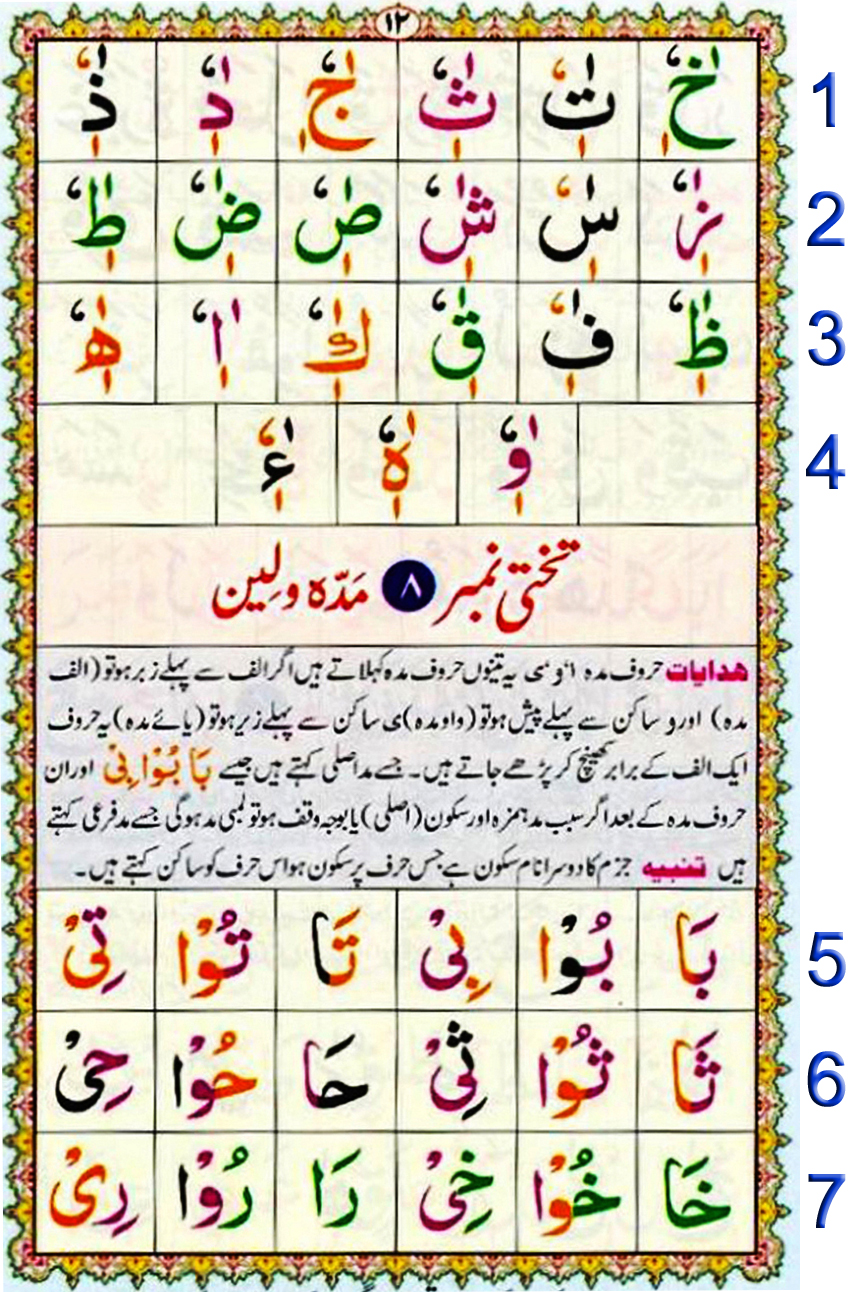 ۱۲
1 خٰٖٗ تٰٖٗ ثٰٖٗ جٰٖٗ دٰٖٗ ذٰٖٗ
2 زٰٖٗ سٰٖٗ شٰٖٗ صٰٖٗ ضٰٖٗ طٰٖٗ
3 ظٰٖٗ فٰٖٗ قٰٖٗ كٰٖٗ اٰٖٗ ھٰٖٗ
4 وٰٖٗ ہٰٖٗ ءٰٖٗ
تختی نمبر ۸ مَدّہ و لِین
ھدایات حروف مدہ ا و ی یہ تینوں حروف مدہ کہلاتے ہیں اگر الف سے پہلے زبر ہو تو (الف
مدہ) اور و ساکن سے پہلے پیش ہو تو (واو مدہ) ی ساکن سے پہلے زیر ہو تو (یائے مدہ) یہ حروف
ایک الف کے برابر کھینچ کر پڑھے جاتے ہیں۔ جسے مد اصلی کہتے ہیں جیسے بَا بُوْا بِیْ اور ان
حروف مدہ کے بعد اگر سبب مد ہمزہ اور سکون (اصلی) یا بوجہ وقف ہو تو لمبی مد ہوگی جسے مد فرعی کہتے
ہیں تنبیہ جزم کا دوسرا نام سکون ہے جس حرف پر سکون ہو اس حرف کو ساکن کہتے ہیں۔
5 بَا بُوْا بِیْ تَا تُوْا تِیْ
6 ثَا ثُوْا ثِیْ حَا حُوْا حِیْ
7 خَا خُوْا خِیْ رَا رُوْا رِیْ